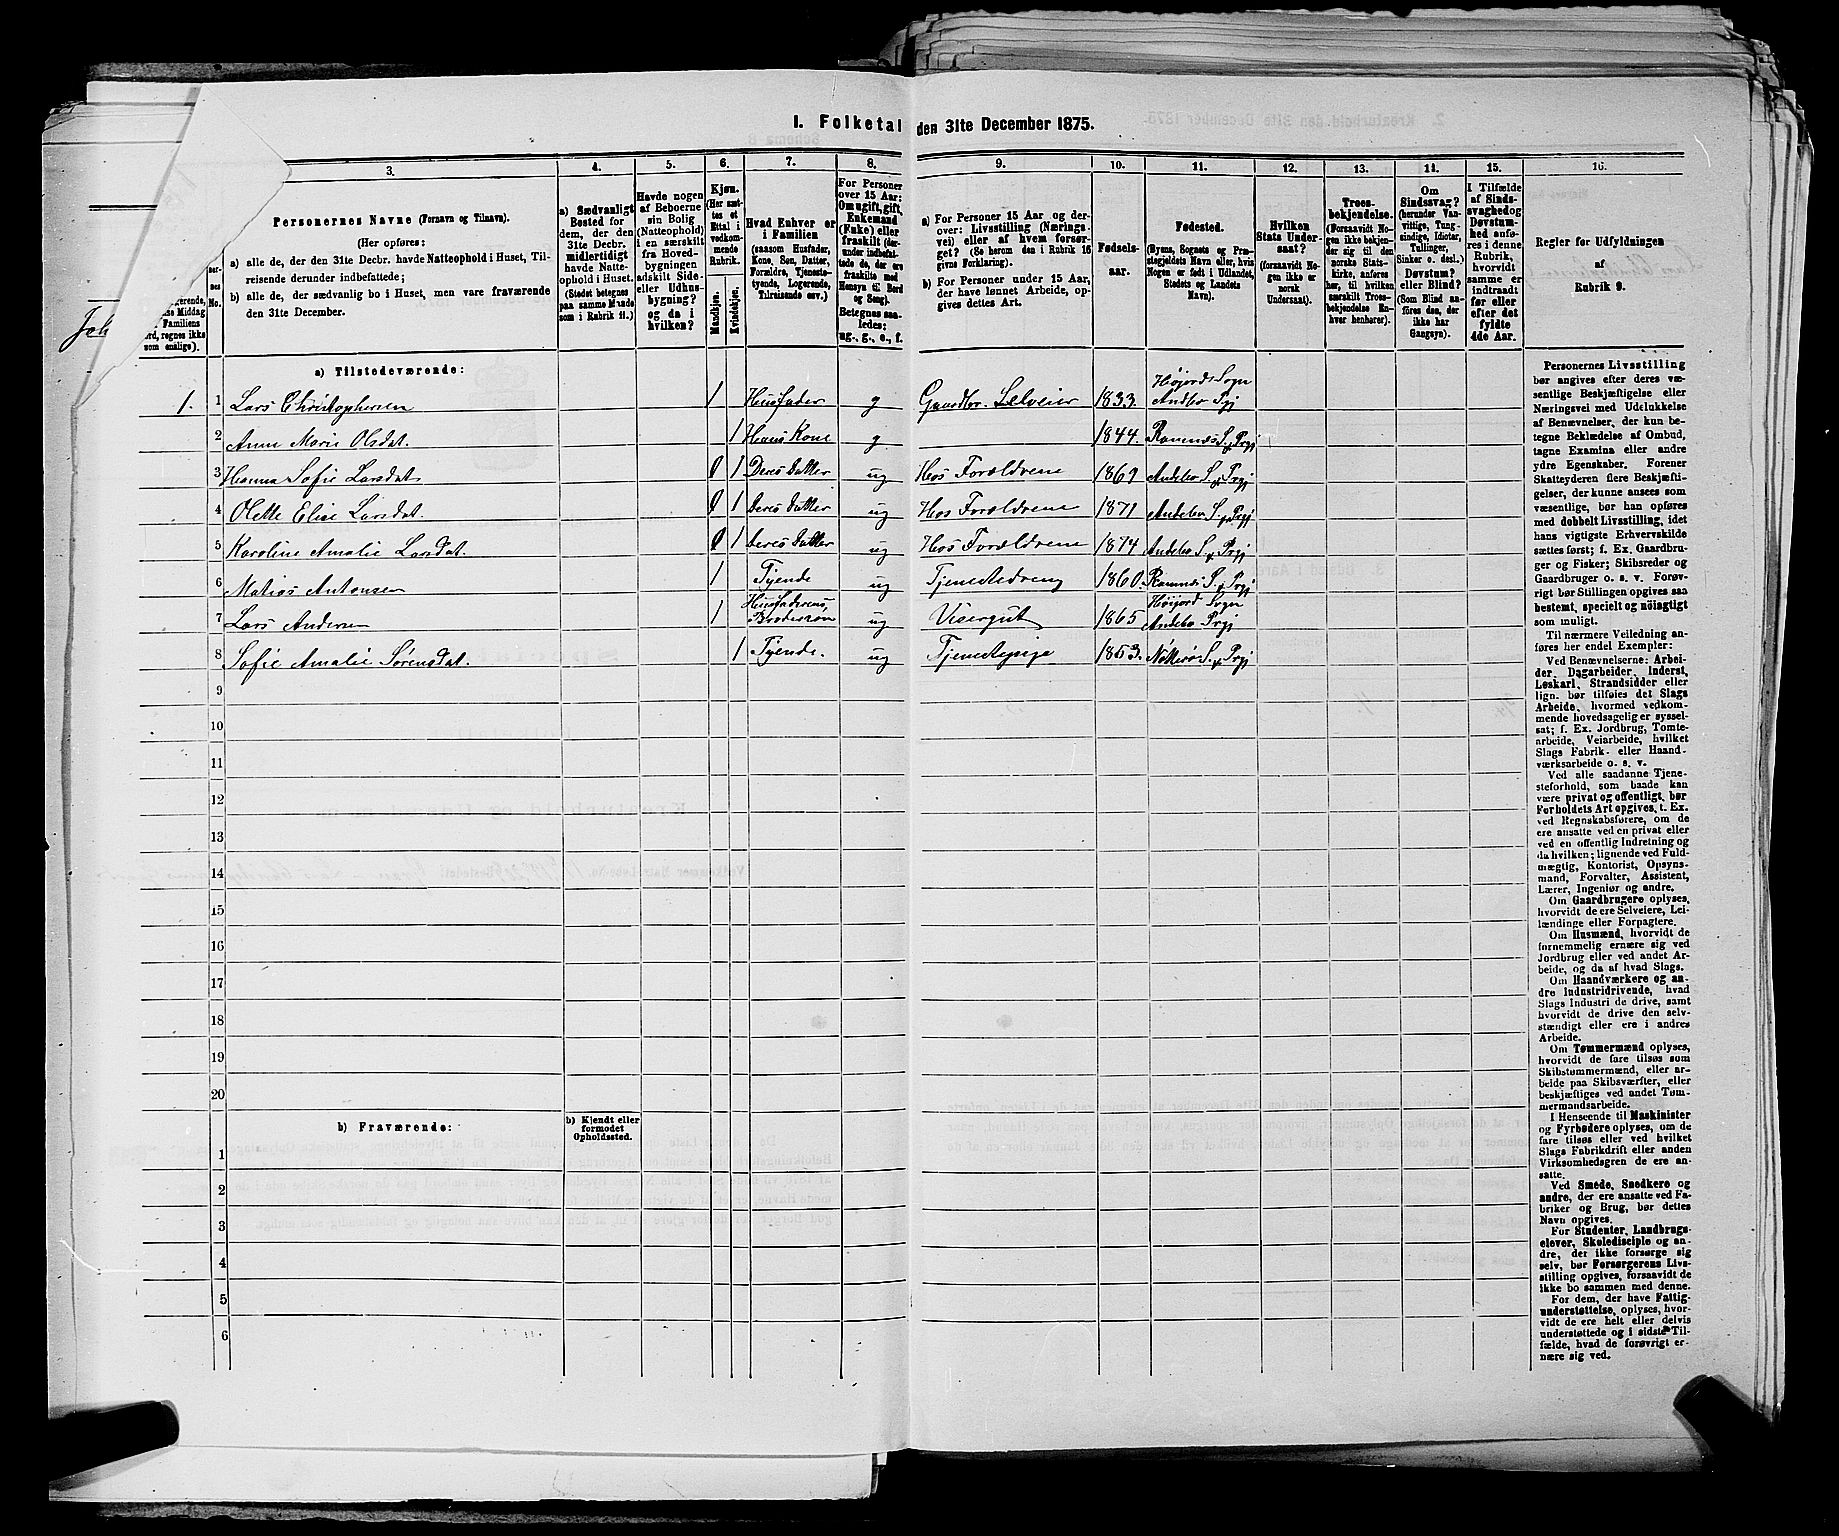 1. Folketal den 31te December 1875.
3. 4. 5. 6. 7. 8. 9. 10. 11. 12. 13. 14. 15. 16.
Personernes Navne (Fornavn og Tilnavn).
(Her opføres:
a) alle de, der den 31te Decbr. havde Natteophold i Huset, Til-
reisende derunder indbefattede;
b) alle de, der sædvanlig bo i Huset, men vare fraværende
den 31te December.
No.
a) Sædvanligt
Bosted for
dem, der den
31te Decbr.
midlertidigt
havde Natte-
ophold i Huset.
(Stedet betegnes
paa samme Maade
som i Rubrik 11.)
Havde nogen
af Beboerne
sin Bolig
(Natteophold)
i en særskilt
fra Hoved-
bygningen
adskilt Side-
eller Udhus-
bygning?
og da i
hvilken?
Kjøn.
(Her sæt-
tes et
Ettal i
vedkom-
mende
Rubrik.
Mandkjøn.
Kvindekjøn.
Hvad Enhver er
i Familien
(saasom Husfader,
Kone, Søn, Datter,
Forældre, Tjeneste-
tyende, Logerende,
Tilreisende osv.)
For Personer
over 15 Aar:
Om ugift, gift,
Enkemand
(Enke) eller
fraskilt (der-
under indbefat-
tede de, der ere
fraskilte med
Hensyn til Bord
og Seng).
Betegnes saa-
ledes:
ug., g., e., f.
a) For Personer 15 Aar og der-
over: Livsstilling (Nærings-
vei) eller af hvem forsør-
get? (Se herom den i Rubrik 16
givne Forklaring).
b) For Personer under 15 Aar,
der have lønnet Arbeide, op-
gives dettes Art.
Fødsels-
aar.
Fødested.
(Byens, Sognets og Præ-
stegjeldets Navn eller, hvis
Nogen er født i Udlandet,
Stedets og Landets
Navn).
Hvilken
Stats Under-
saat?
(forsaavidt No-
gen ikke er
norsk
Undersaat).
Troes-
bekjendelse.
(Forsaavidt No-
gen ikke bekjen-
der sig til den
norske Stats-
kirke, anføres
her, til hvilken
særskilt Troes-
bekjendelse En-
hver henhører).
Om
Sindssvag?
(herunder Van-
vittige, Tung-
sindige, Idioter,
Tullinger,
Sinker o. desl.)
Døvstum?
eller Blind?
(Som Blind an-
føres den, der
ikke har
Gangsyn).
I Tilfælde
af Sinds-
svaghed og
Døvstum-
hed anfø-
res i denne
Rubrik,
hvorvidt
samme er
indtraadt
før eller
efter det
fyldte
4de Aar.
Regler for Udfyldningen
af
Rubrik 9.
a) Tilstedeværende:
1. 1 Lars Christophersen 1 Husfader g Gaardbr. Selveier 1833. Høijords Sogn Andebo Prgj
2 Anne Marie Olsdat. 1 Hans Kone g 1844. Ramnæs S. & Prgj
3 Hanna Sofie Larsdat 0 1 Deres Datter ug Hos Forældrene 1869 Andebo S. & Prgj
4 Olette Elise Larsdat. 0 1 Deres Datter ug Hos Forældrene 1871 Andebo S. & Prgj
5 Karoline Amalie Larsdat. 0 1 Deres Datter ug Hos Forældrene 1874 Andebo S. & Prgj
6 Matias Antonsen 1 Tyende ug Tjenestedreng 1860. Ramnæs S. & Prgj
7 Lars Andersen 1 Husfaderens Brodersøn ug Visergut 1865 Høijord Sogn Andebo Prgj
8 Sofie Amalie Sørensdat. 1 Tyende. ug Tjenestepige 1853. Nøtterø S. & Prgj
9
10
11
12
13
14
15
16
17
18
19
20
b) Fraværende:
b) Kjendt eller
formodet
Opholdssted.
1
2
3
4
5
6
Personernes Livsstilling
bør angives efter deres væ-
sentlige Beskjæftigelse eller
Næringsvei med Udelukkelse
af Benævnelser, der kun be-
tegne Beklædelse af Ombud,
tagne Examina eller andre
ydre Egenskaber. Forener
Skatteyderen flere Beskjæfti-
gelser, der kunne ansees som
væsentlige, bør han opføres
med dobbelt Livsstilling, idet
hans vigtigste Erhvervskilde
sættes først; f. Ex. Gaardbru-
ger og Fisker; Skibsreder og
Gaardbruger o. s. v. Forøv-
rigt bør Stillingen opgives saa
bestemt, specielt og nøiagtigt
som muligt.
Til nærmere Veiledning an-
føres her endel Exempler:
Ved Benævnelserne: Arbei-
der, Dagarbeider, Inderst,
Løskarl, Strandsidder eller
lign. bør tilføies det Slags
Arbeide, hvormed vedkom-
mende hovedsagelig er syssel-
sat; f. Ex. Jordbrug, Tomte-
arbeide, Veiarbeide, hvilket
Slags Fabrik- eller Haand-
værksarbeide o. s. v.
Ved alle saadanne Tjene-
steforhold, som baade kan
være privat og offentligt, bør
Forholdets Art opgives, t. Ex.
ved Regnskabsførere, om de
ere ansatte ved en privat eller
ved en offentlig Indretning og
da hvilken; lignende ved Fuld-
mægtig, Kontorist, Opsyns-
mand, Forvalter, Assistent,
Lærer, Ingeniør og andre.
Om Gaardbrugere oplyses,
hvorvidt de ere Selveiere, Lei-
lændinge eller Forpagtere.
Om Husmænd, hvorvidt de
fornemmelig ernære sig ved
Jordbrug eller ved andet Ar-
beide, og da af hvad Slags.
Om Haandværkere og an-
dre Industridrivende, hvad
Slags Industri de drive, samt
hvorvidt de drive den selv-
stændigt eller ere i andres
Arbeide.
Om Tømmermænd oplyses,
hvorvidt de fare tilsøs som
Skibstømmermænd, eller ar-
beide paa Skibsværfter, eller
beskjæftiges ved andet Tøm-
mermandsarbeide.
I Henseende til Maskinister
og Fyrbødere oplyses, om de
fare tilsøs eller ved hvilket
Slags Fabrikdrift eller anden
Virksomhedsgren de ere an-
satte.
Ved Smede, Snedkere og
andre, der ere ansatte ved Fa-
briker og Brug, bør dettes
Navn opgives.
For Studenter, Landbrugs-
elever, Skoledisciple og an-
dre, der ikke forsørge sig
selv, bør Forsørgerens Livs-
stilling opgives, forsaavidt de
ikke bo sammen med denne.
For dem, der have Fattig-
understøttelse, oplyses, hvor-
vidt de ere helt eller delvis
understøttede og i sidste Til-
fælde, hvad de forøvrigt er-
nære sig ved.